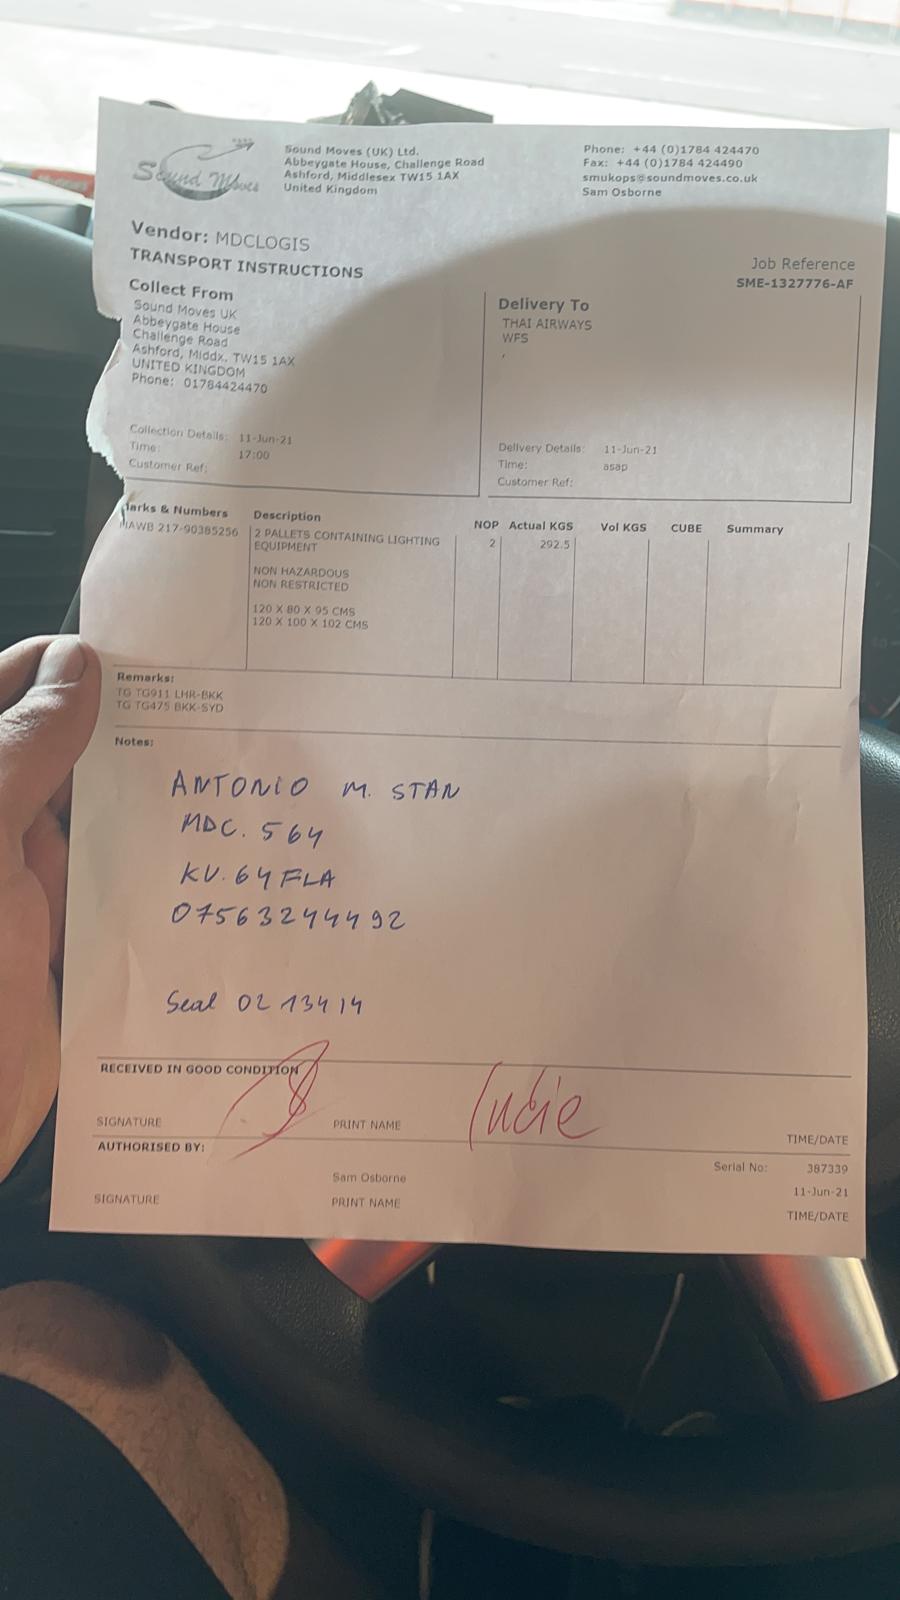 Sound Moves
Sound Moves (UK) Ltd.
Abbeygate House, Challenge Road
Ashford, Middlesex TW15 1AX
United Kingdom
Phone: +44 (0)1784 424470
Fax: +44 (0)1784 424490
smukops@soundmoves.co.uk
Sam Osborne
Vendor: MDCLOGIS
TRANSPORT INSTRUCTIONS
Job Reference
SME-1327776-AF
Collect From
Sound Moves UK
Abbeygate House
Challenge Road
Ashford, Middx. TW15 1AX
UNITED KINGDOM
Phone: 01784424470
Collection Details: 11-Jun-21
Time: 17:00
Customer Ref:
Delivery To
THAI AIRWAYS
WFS
,
Delivery Details: 11-Jun-21
Time: asap
Customer Ref:
Marks & Numbers Description NOP Actual KGS Vol KGS CUBE Summary
MAWB 217-90385256 2 PALLETS CONTAINING LIGHTING 2 292.5
EQUIPMENT
NON HAZARDOUS
NON RESTRICTED
120 X 80 X 95 CMS
120 X 100 X 102 CMS
Remarks:
TG TG911 LHR-BKK
TG TG475 BKK-SYD
Notes:
ANTONIO M. STAN
MDC. 564
KV. 64 FLA
07563244492
Seal 0213414
RECEIVED IN GOOD CONDITION
Indie
SIGNATURE PRINT NAME TIME/DATE
AUTHORISED BY:
Serial No: 387339
Sam Osborne 11-Jun-21
SIGNATURE PRINT NAME TIME/DATE